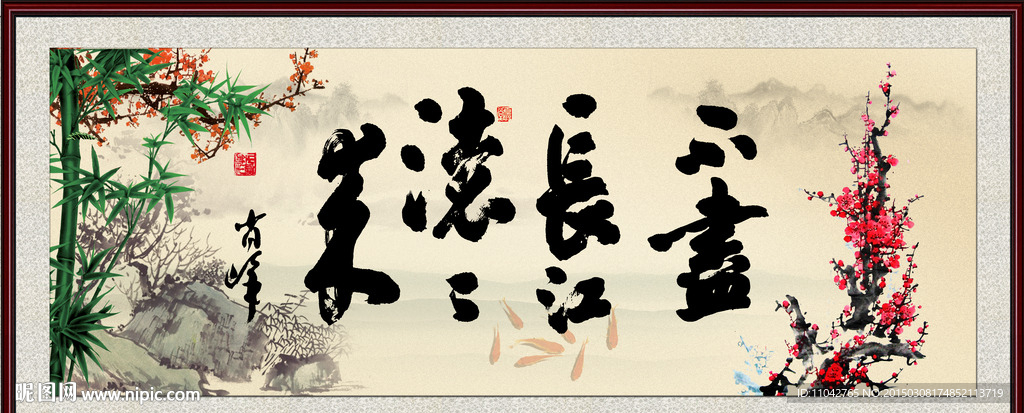 不盡
長江
滚〻
来
肖峰
昵图网 www.nipic.com
ID:11042765 NO:20150308174852113719